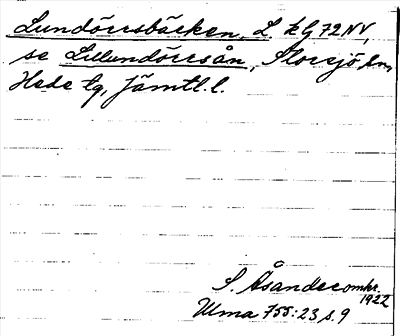 Lundörrsbäcken, L. kG 72 NV,
se Lillundörrsån, Storsjö sn,
Hede tg, Jämtl. l.
S. Åsander omkr.
1922
Ulma 755:23 s. 9